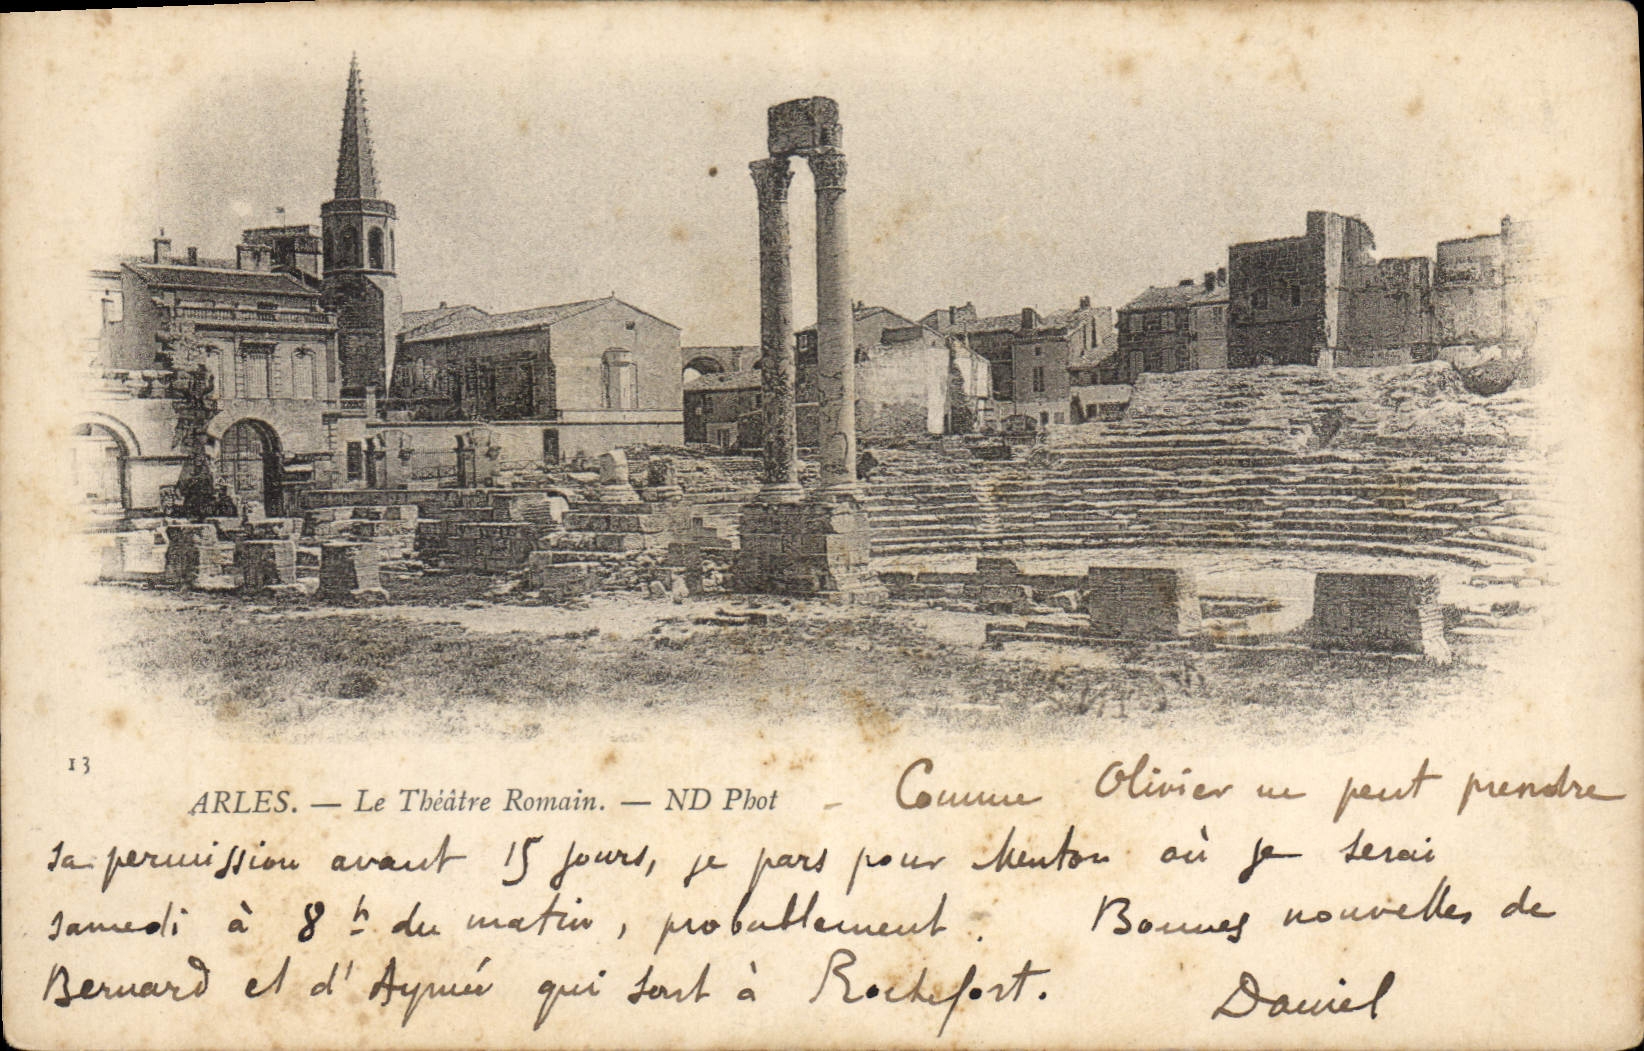 13
ARLES. — Le Théâtre Romain. — ND Phot – Comme Olivier ne peut prendre
sa permission avant 15 jours, je pars pour Menton où je serai
samedi à 8 h du matin, probablement. Bonnes nouvelles de
Bernard et d'Aymée qui sont à Rochefort. Daniel